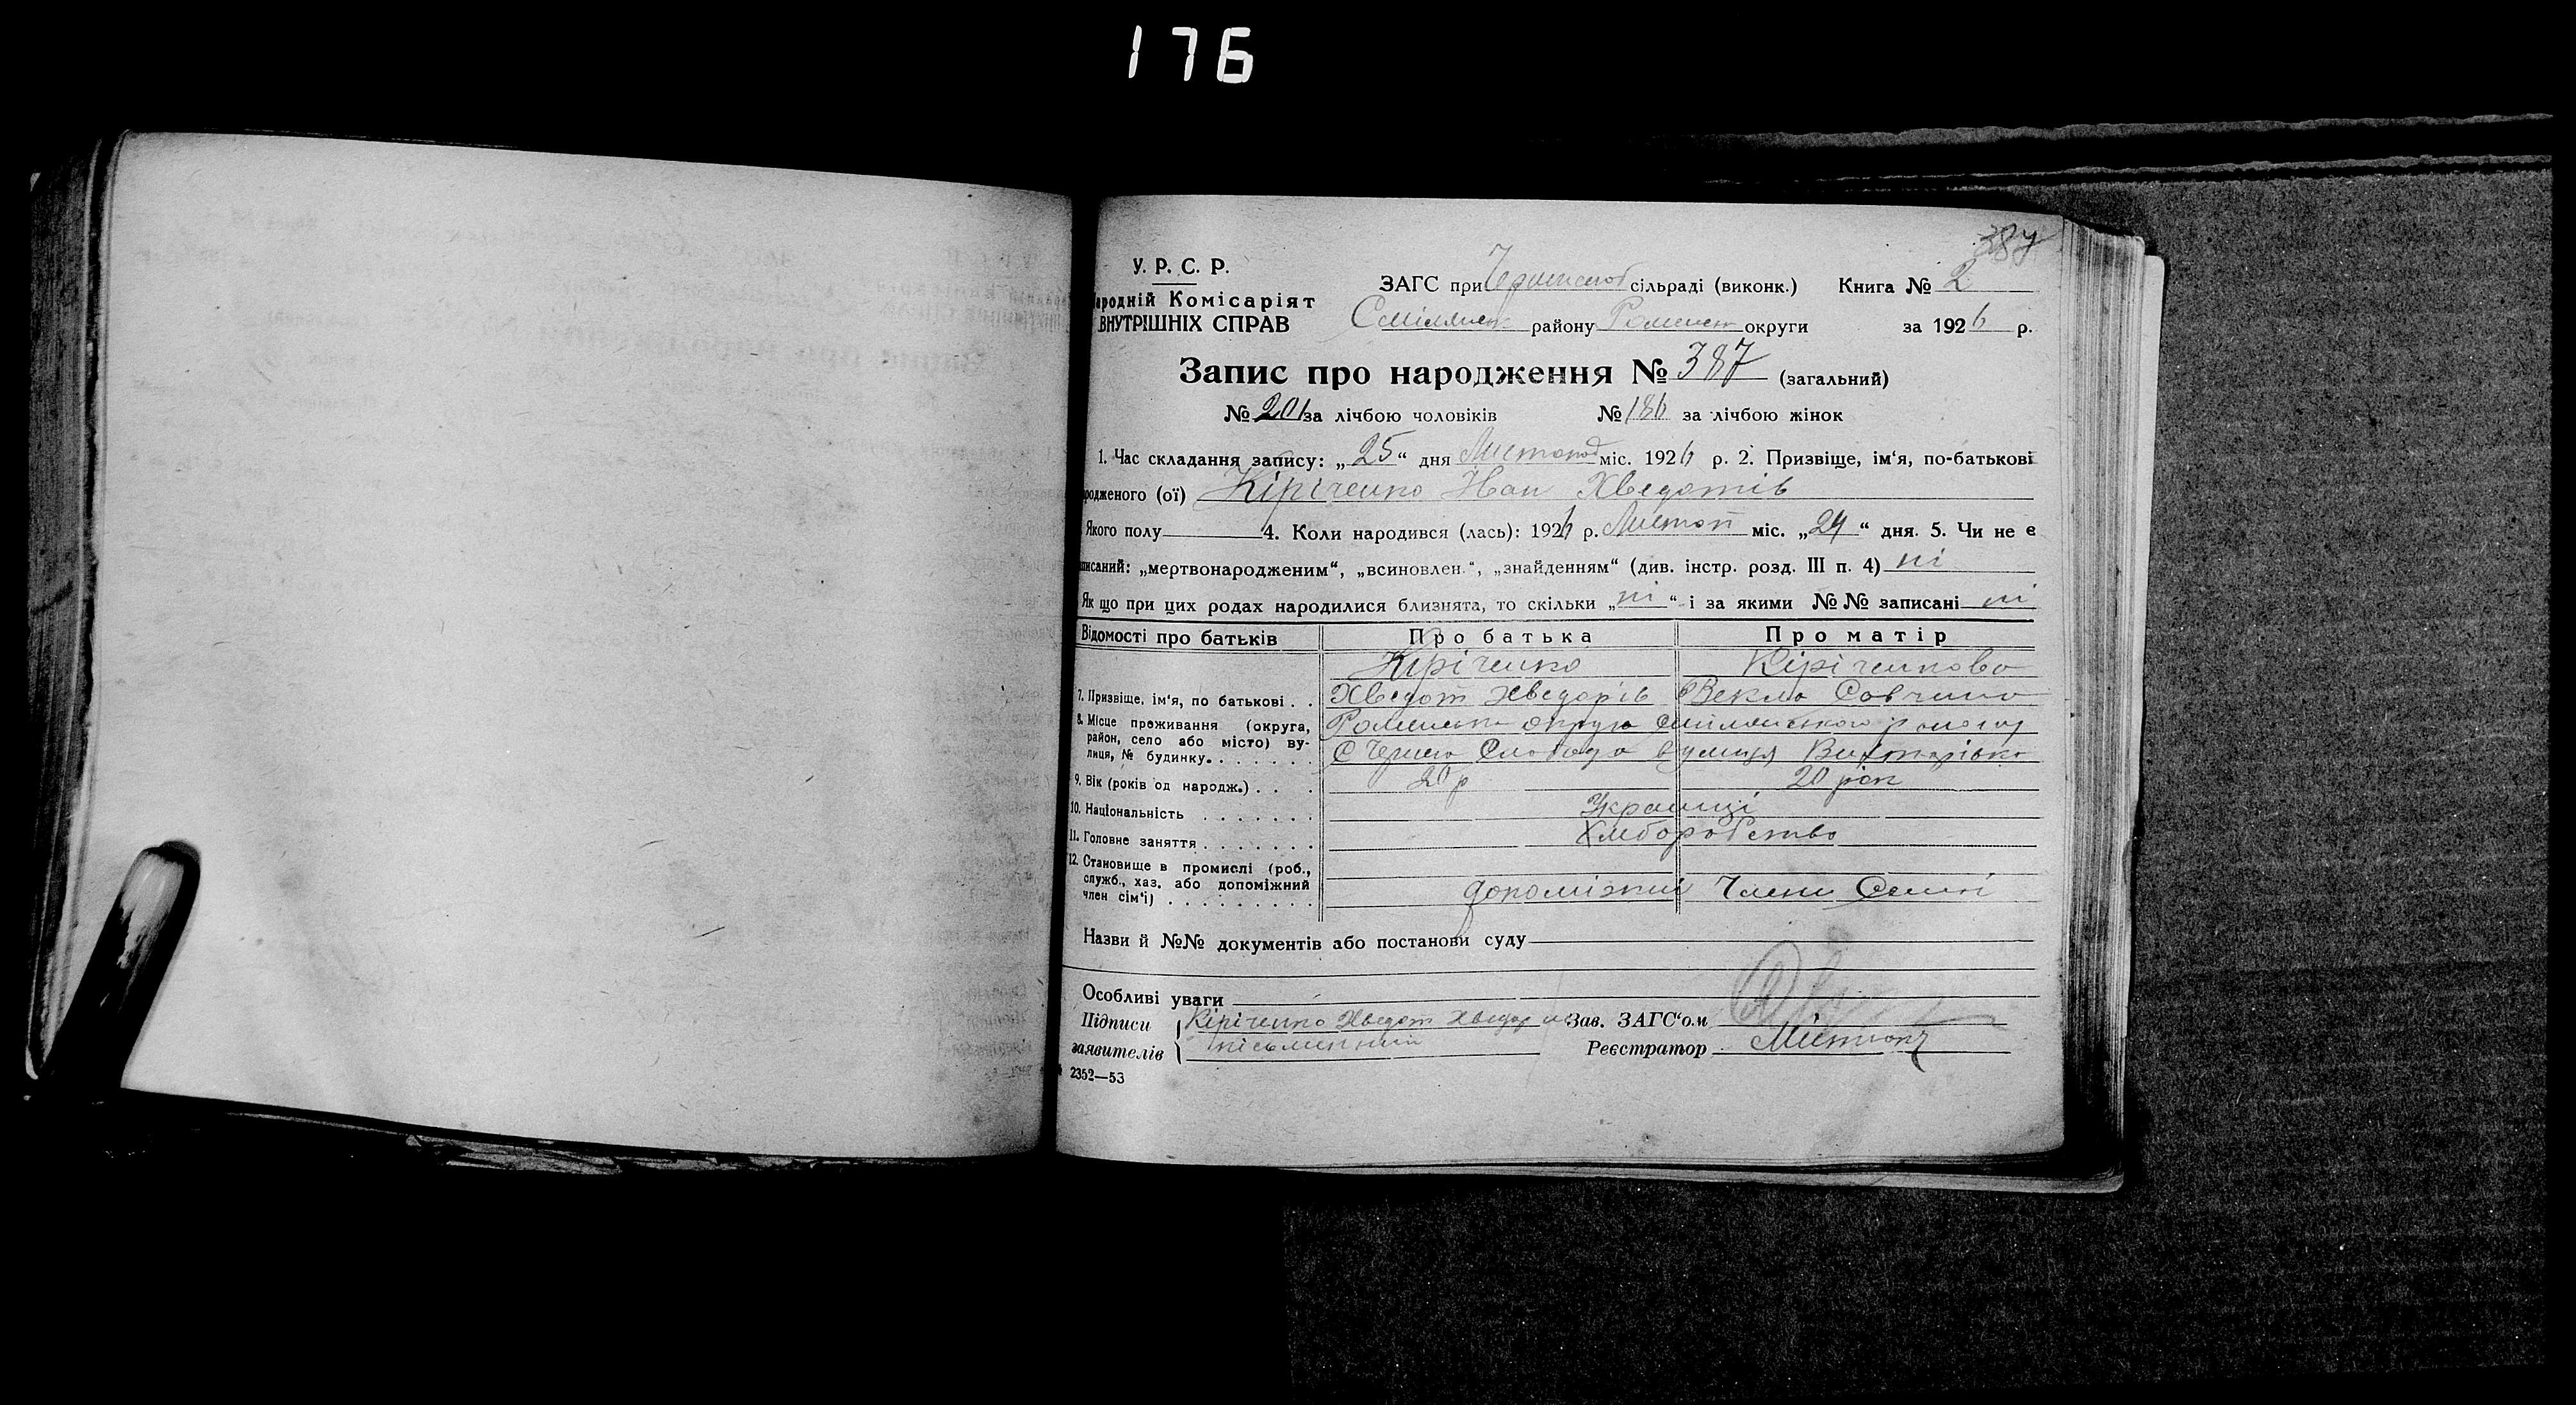 176
387
У. Р. С. Р.
ародній Комісаріят
ВНУТРІШНІХ СПРАВ
ЗАГС при Чернечслоб сільраді (виконк.) Книга № 2
Смілянськ району Роменськ округи за 1926 р.
Запис про народження № 387 (загальний)
№ 201 за лічбою чоловіків № 186 за лічбою жінок
1. Час складання запису: „25“ дня Листопад міс. 1926 р. 2. Призвіще, ім‘я, по-батькові
родженого (ої) Кіріченко Иван Хведотів
Якого полу 4. Коли народився (лась): 1926 р. Листоп міс. „24“ дня. 5. Чи не є
писаний: „мертвонародженим“, „всиновлен.“, „знайденням“ (див. інстр. розд. III п. 4) ні
Як що при цих родах народилися близнята, то скільки „ні“ і за якими №№ записані ні
Відомості про батьків Про батька Про матір
Кіріченко Кіріченкова
7. Призвіще, ім‘я, по батькові . . Хведот Хведорів Векла Савчина
8. Місце проживання (округа, район, село або місто) вулиця, № будинку. . . . . . . Роменська округа Смілянського району
С Чернеча Слобода вулиця
9. Вік (років од народж.) . . . 20 р 20 рок
10. Національність . . . . . . . Украінці
11. Головне заняття . . . . . . . Хліборобство
12. Становище в промислі (роб.,
служб., хаз. або допоміжний
член сім‘ї) . . . . . . . . . допоміжний Члени Семиї
Назви й №№ документів або постанови суду
Особливі уваги
Підписи Кіріченко Хведот Хведор Зав. ЗАГС‘ом
заявителів письменний Реєстратор
2352—53